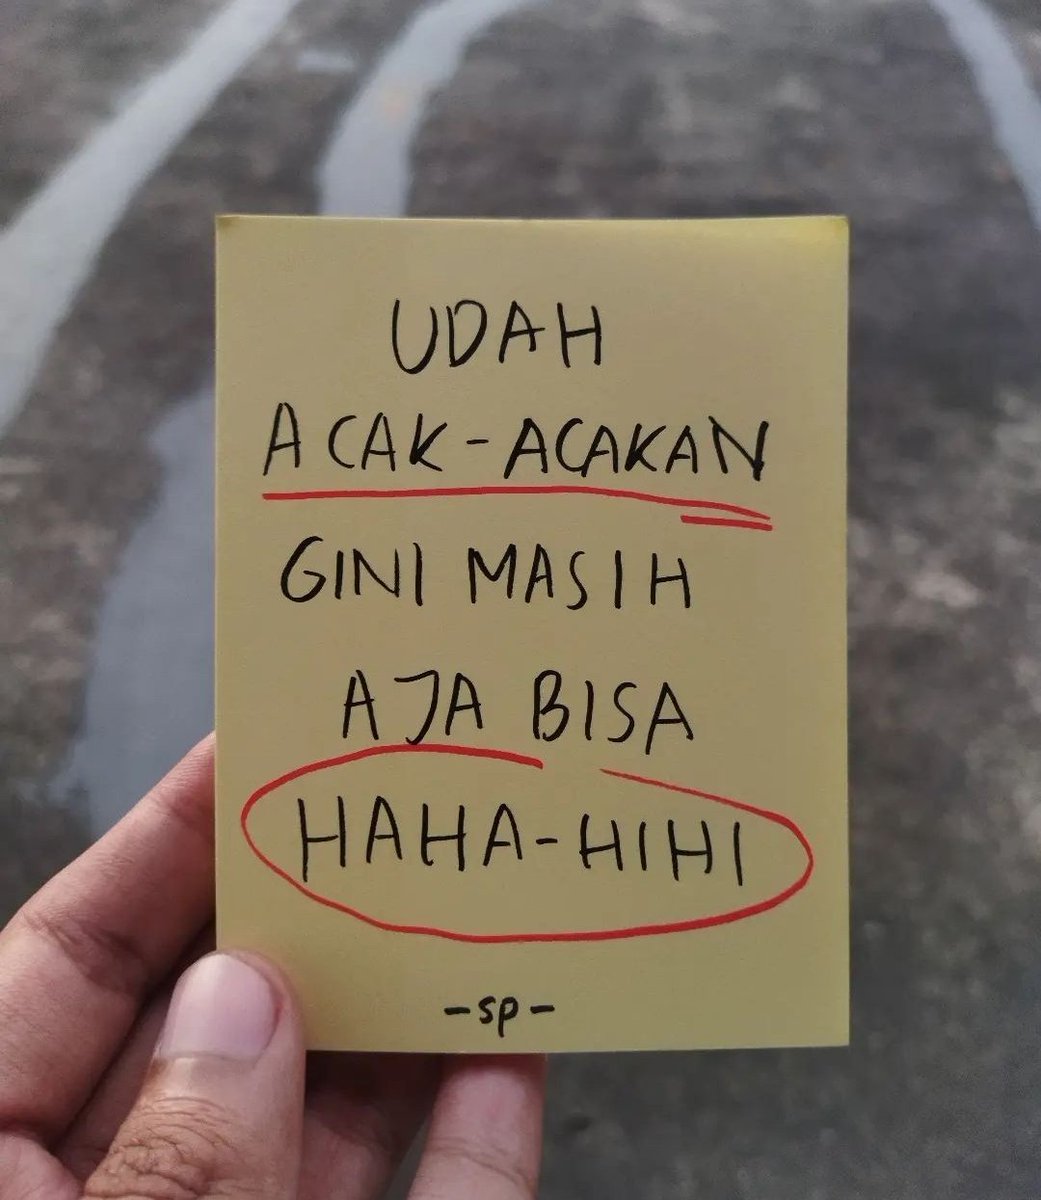 UDAH
ACAK-ACAKAN
GINI MASIH
AJA BISA
HAHA-HIHI
-sp-